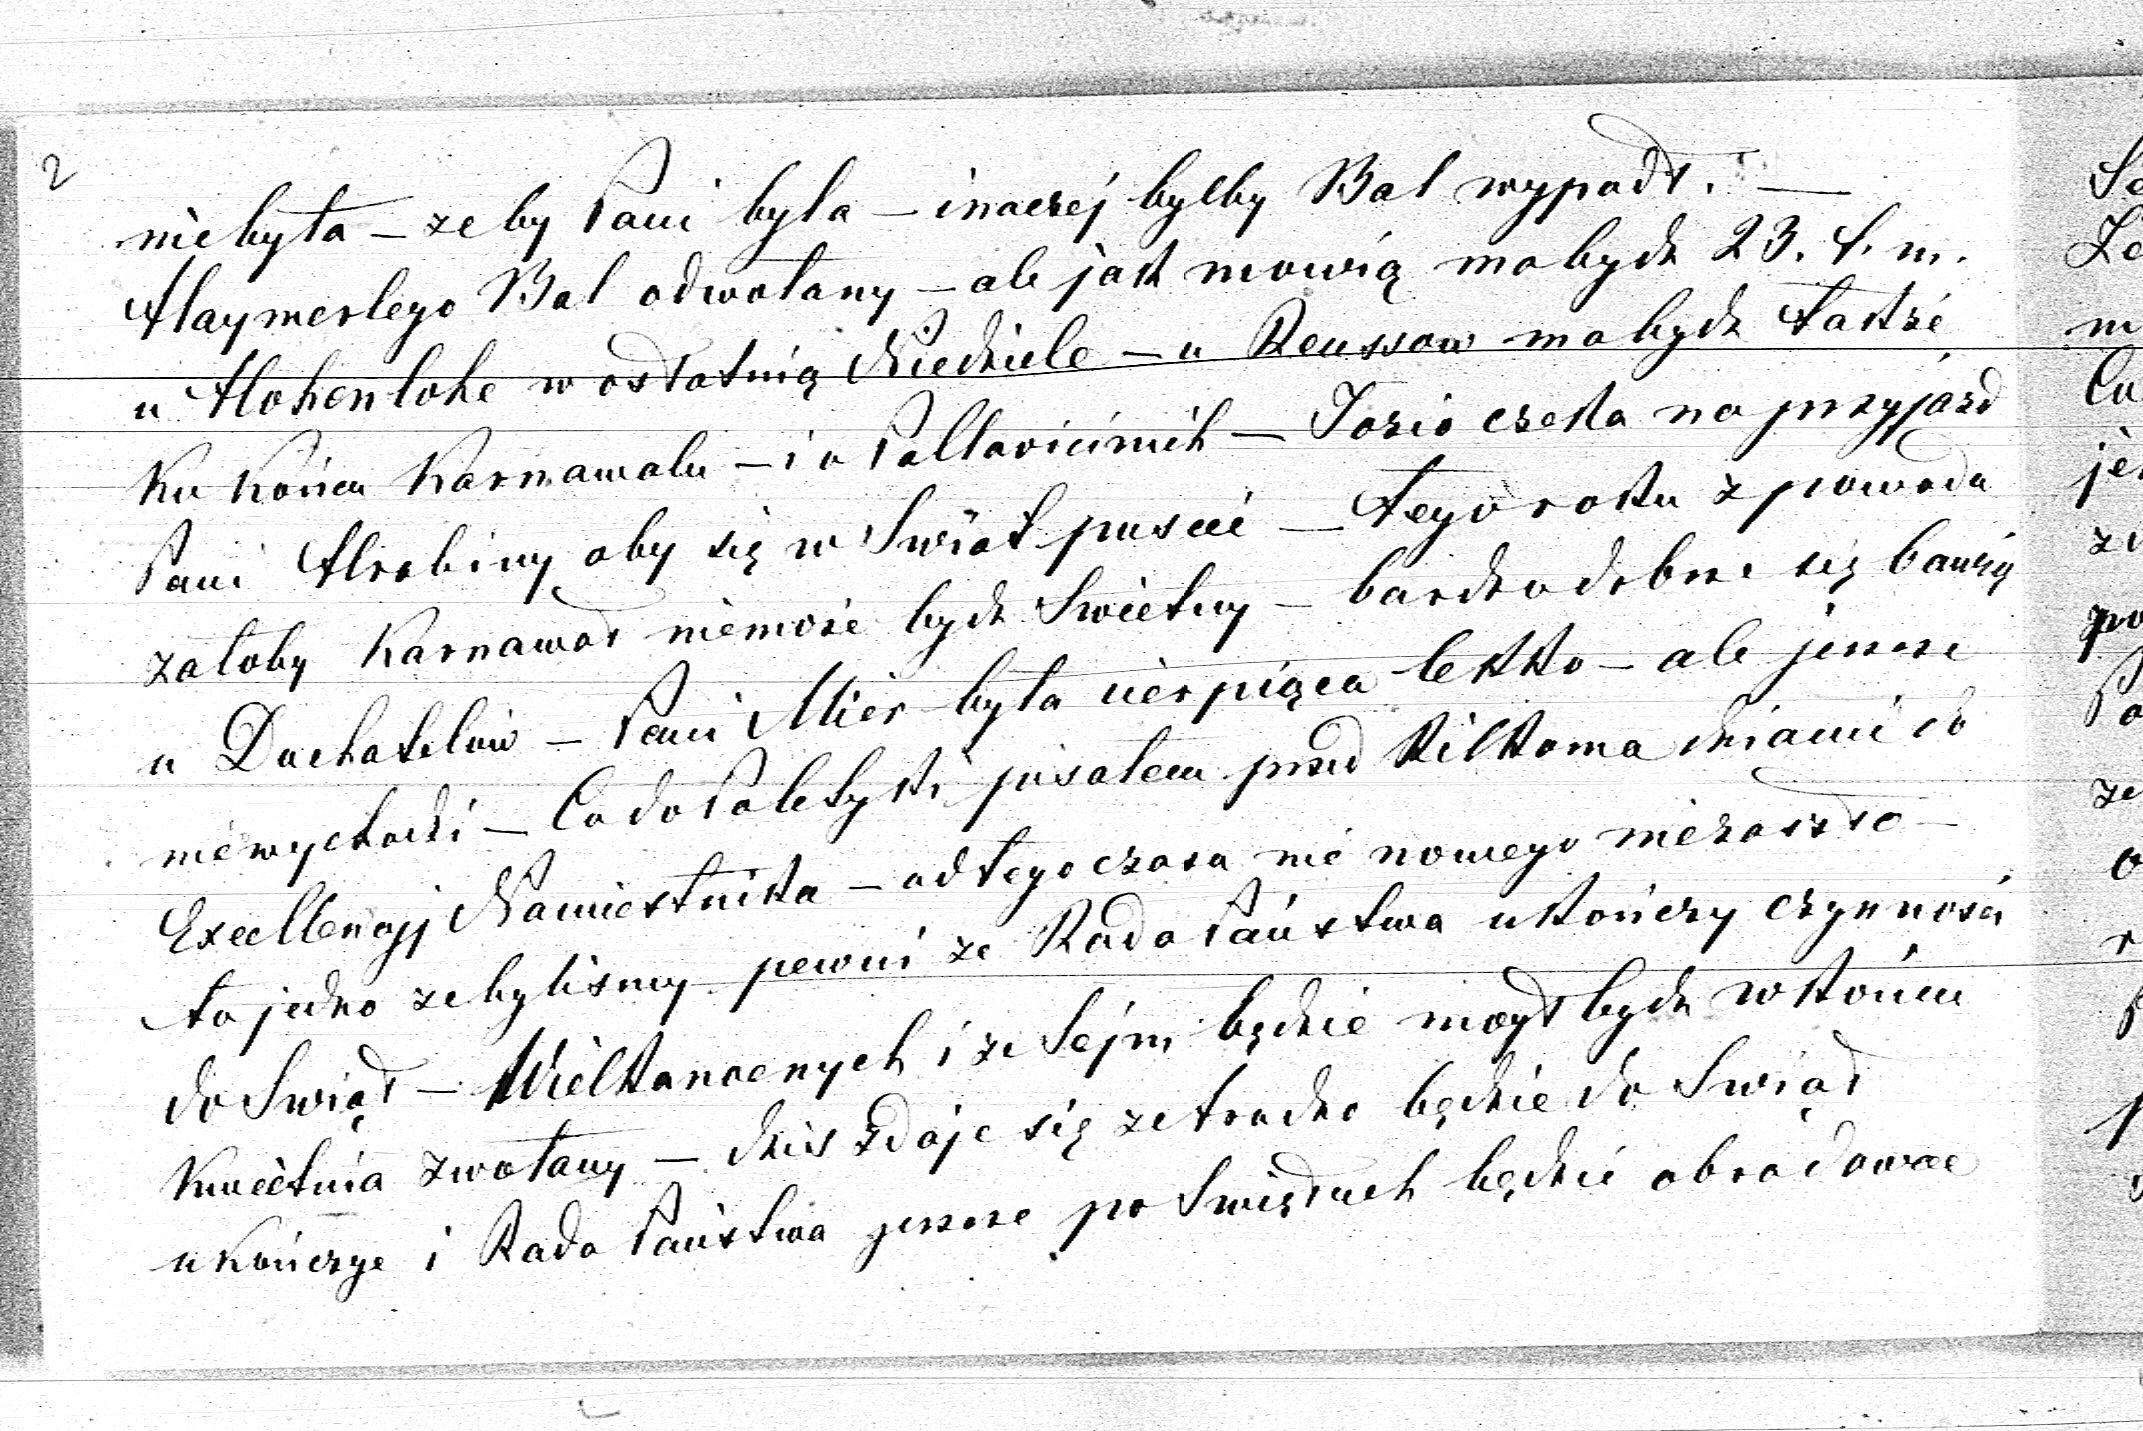 2
niebyta – zeby Pani byla – inaczej byłby Bal wypadł. —
Haymerlego Bal odwołany – ale jak mowią ma bydz 23. t. m.
u Hohenlohe w ostatnią Niedziele – u Reussow ma bydz takze
Ku Końcu Karnawalu – i u Pallavicinich – Jozio czeka na przyjazd
Pani Hrabiny aby się w Swiat puscić – tego roku z powodu
załoby Karnawał niemoze bydz Swietny – bardzo dobrze się bawią
u Duchatelów – Pani Mier była cierpiąca lekko – ale jeszcze
niewychodzi – Co do Polityki pisałem przed kilkoma dniami do
Excellencyj Namiestnika – od tego czasu nic nowego niezaszło –
to jedno ze bylismy pewni ze Rada Państwa ukończy czynności
do Swiąt – Wielkanocnych i ze Sejm będzie mógł bydz w końcu
Kwietnia zwołany – dzis zdaje się ze trudno będzie do Swiąt
ukończyc i Rada Państwa jeszcze po Swiętach będzie obradowac